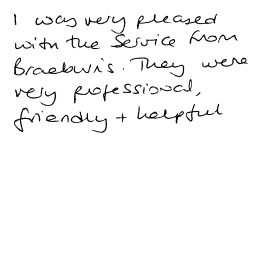 I was very pleased
with the Service from
Braeburis. They were
very professional,
friendly + helpful